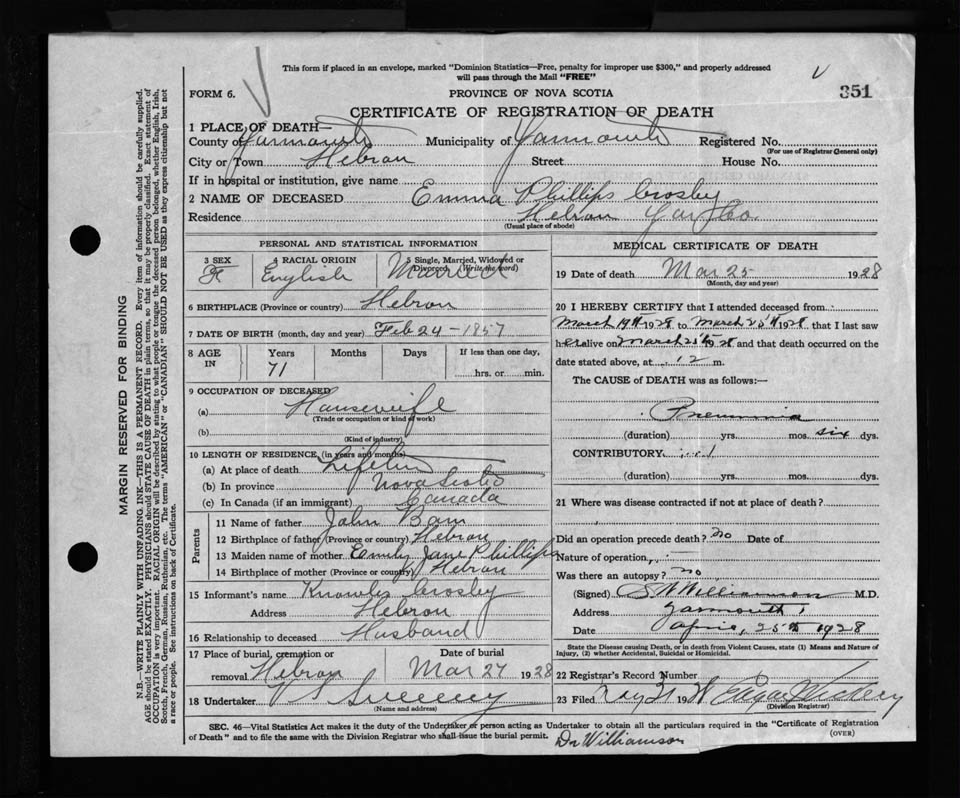 This form if placed in an envelope, marked "Dominion Statistics—Free, penalty for improper use $300," and properly addressed
will pass through the Mail "FREE"
FORM 6.
PROVINCE OF NOVA SCOTIA
351
CERTIFICATE OF REGISTRATION OF DEATH
1 PLACE OF DEATH—
County of Yarmouth Municipality of Yarmouth Registered No.
(For use of Registrar General only)
City or Town Hebron Street House No.
If in hospital or institution, give name
2 NAME OF DECEASED Emma Phillips Crosby
Residence Hebron Yar Co.
(Usual place of abode)
PERSONAL AND STATISTICAL INFORMATION
3 SEX 4 RACIAL ORIGIN 5 Single, Married, Widowed or Divorced (Write the word)
F English Married
6 BIRTHPLACE (Province or country) Hebron
7 DATE OF BIRTH (month, day and year) Feb 24-1857
8 AGE IN Years Months Days If less than one day,
71 hrs. or min.
9 OCCUPATION OF DECEASED
(a) Housewife
(Trade or occupation or kind of work)
(b)
(Kind of industry)
10 LENGTH OF RESIDENCE (in years and months)
(a) At place of death Lifetime
(b) In province Nova Scotia
(c) In Canada (if an immigrant) Canada
Parents
11 Name of father John
12 Birthplace of father (Province or country) Hebron
13 Maiden name of mother Emily Jane Phillips
14 Birthplace of mother (Province or country) Hebron
15 Informant's name Knowles Crosby
Address Hebron
16 Relationship to deceased Husband
17 Place of burial, cremation or removal Hebron
Date of burial Mar 27 1928
18 Undertaker V S Sweeney
(Name and address)
MEDICAL CERTIFICATE OF DEATH
19 Date of death Mar 25 1928
(Month, day and year)
20 I HEREBY CERTIFY that I attended deceased from
March 19th 1928 to March 25th 1928 that I last saw
her alive on March 25th 28 and that death occurred on the
date stated above, at 12 m.
The CAUSE of DEATH was as follows:—
Pneumonia
(duration) yrs. mos. six dys.
CONTRIBUTORY
(duration) yrs. mos. dys.
21 Where was disease contracted if not at place of death?
Did an operation precede death? no Date of
Nature of operation
Was there an autopsy? no
(Signed) Williamson M.D.
Address Yarmouth
Date April, 25th 1928
State the Disease causing Death, or in death from Violent Causes, state (1) Means and Nature of
Injury, (2) whether Accidental, Suicidal or Homicidal.
22 Registrar's Record Number
23 Filed May 31 1928
(Division Registrar)
SEC. 46—Vital Statistics Act makes it the duty of the Undertaker or person acting as Undertaker to obtain all the particulars required in the "Certificate of Registration
of Death" and to file the same with the Division Registrar who shall issue the burial permit.
(OVER)
Dr Williamson
MARGIN RESERVED FOR BINDING
N.B.—WRITE PLAINLY WITH UNFADING INK—THIS IS A PERMANENT RECORD. Every item of information should be carefully supplied.
AGE should be stated EXACTLY. PHYSICIANS should STATE CAUSE OF DEATH in plain terms, so that it may be properly classified. Exact statement of
OCCUPATION is very important. RACIAL ORIGIN will be described by stating to what people or tongue the deceased person belonged, whether English, Irish,
Scotch, French, German, Russian, Ruthenian, etc. The terms "AMERICAN" or "CANADIAN" SHOULD NOT BE USED as they express citizenship but not
a race or people. See instructions on back of Certificate.